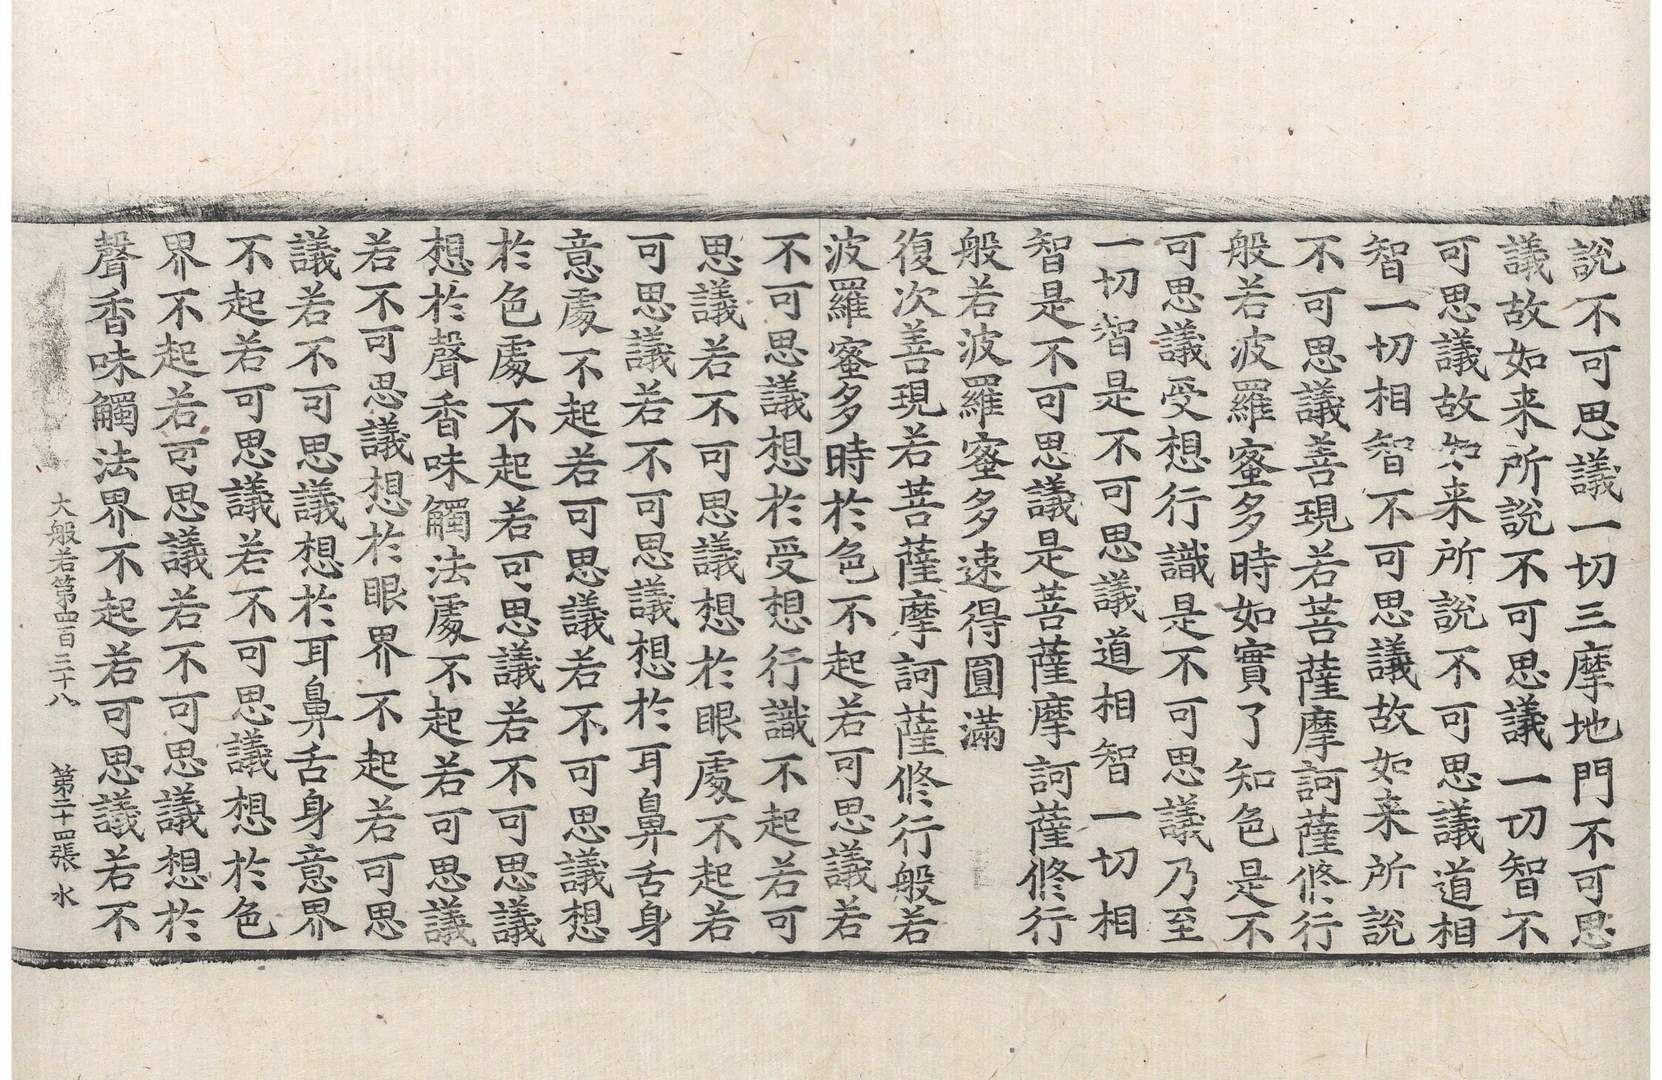 說不可思議一切三摩地門不可思
議故如来所說不可思議一切智不
可思議故如来所說不可思議道相
智一切相智不可思議故如来所說
不可思議善現若菩薩摩訶薩修行
般若波羅蜜多時如實了知色是不
可思議受想行識是不可思議乃至
一切智是不可思議道相智一切相
智是不可思議是菩薩摩訶薩修行
般若波羅蜜多速得圓滿
復次善現若菩薩摩訶薩修行般若
波羅蜜多時於色不起若可思議若
不可思議想於受想行識不起若可
思議若不可思議想於眼處不起若
可思議若不可思議想於耳鼻舌身
意處不起若可思議若不可思議想
於色處不起若可思議若不可思議
想於聲香味觸法處不起若可思議
若不可思議想於眼界不起若可思
議若不可思議想於耳鼻舌身意界
不起若可思議若不可思議想於色
界不起若可思議若不可思議想於
聲香味觸法界不起若可思議若不
大般若第四百三十八 第二十四張 水